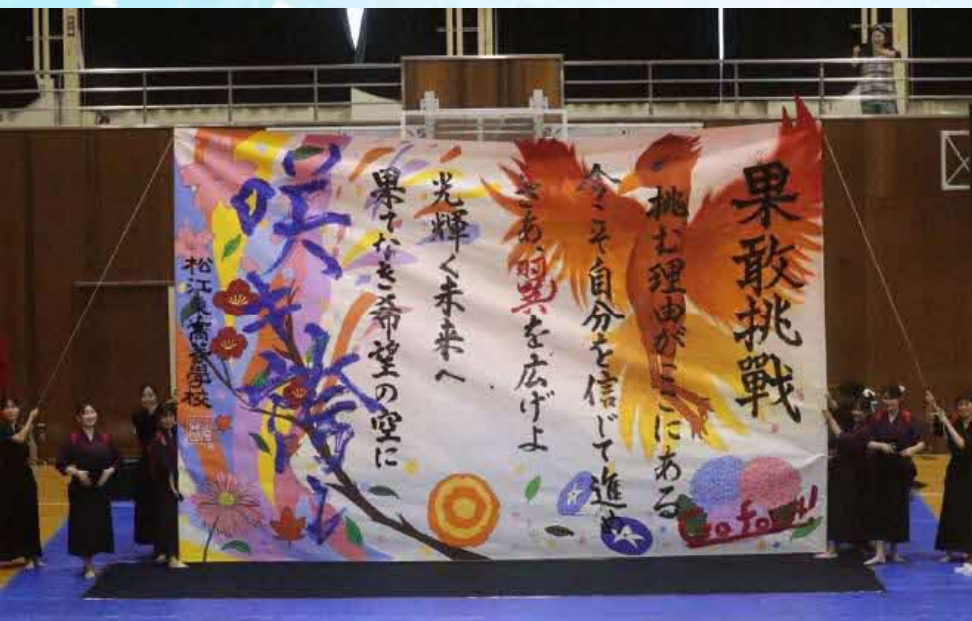 果敢挑戰
挑む理由がここにある
今こそ自分を信じて進め
さあ、翼を広げよ
光輝く未来へ
果てなき希望の空に
咲き誇れ
松江東高等學校
Go for it!